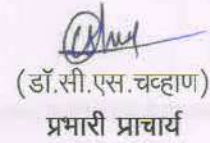 (डॉ.सी.एस.चव्हाण)
प्रभारी प्राचार्य